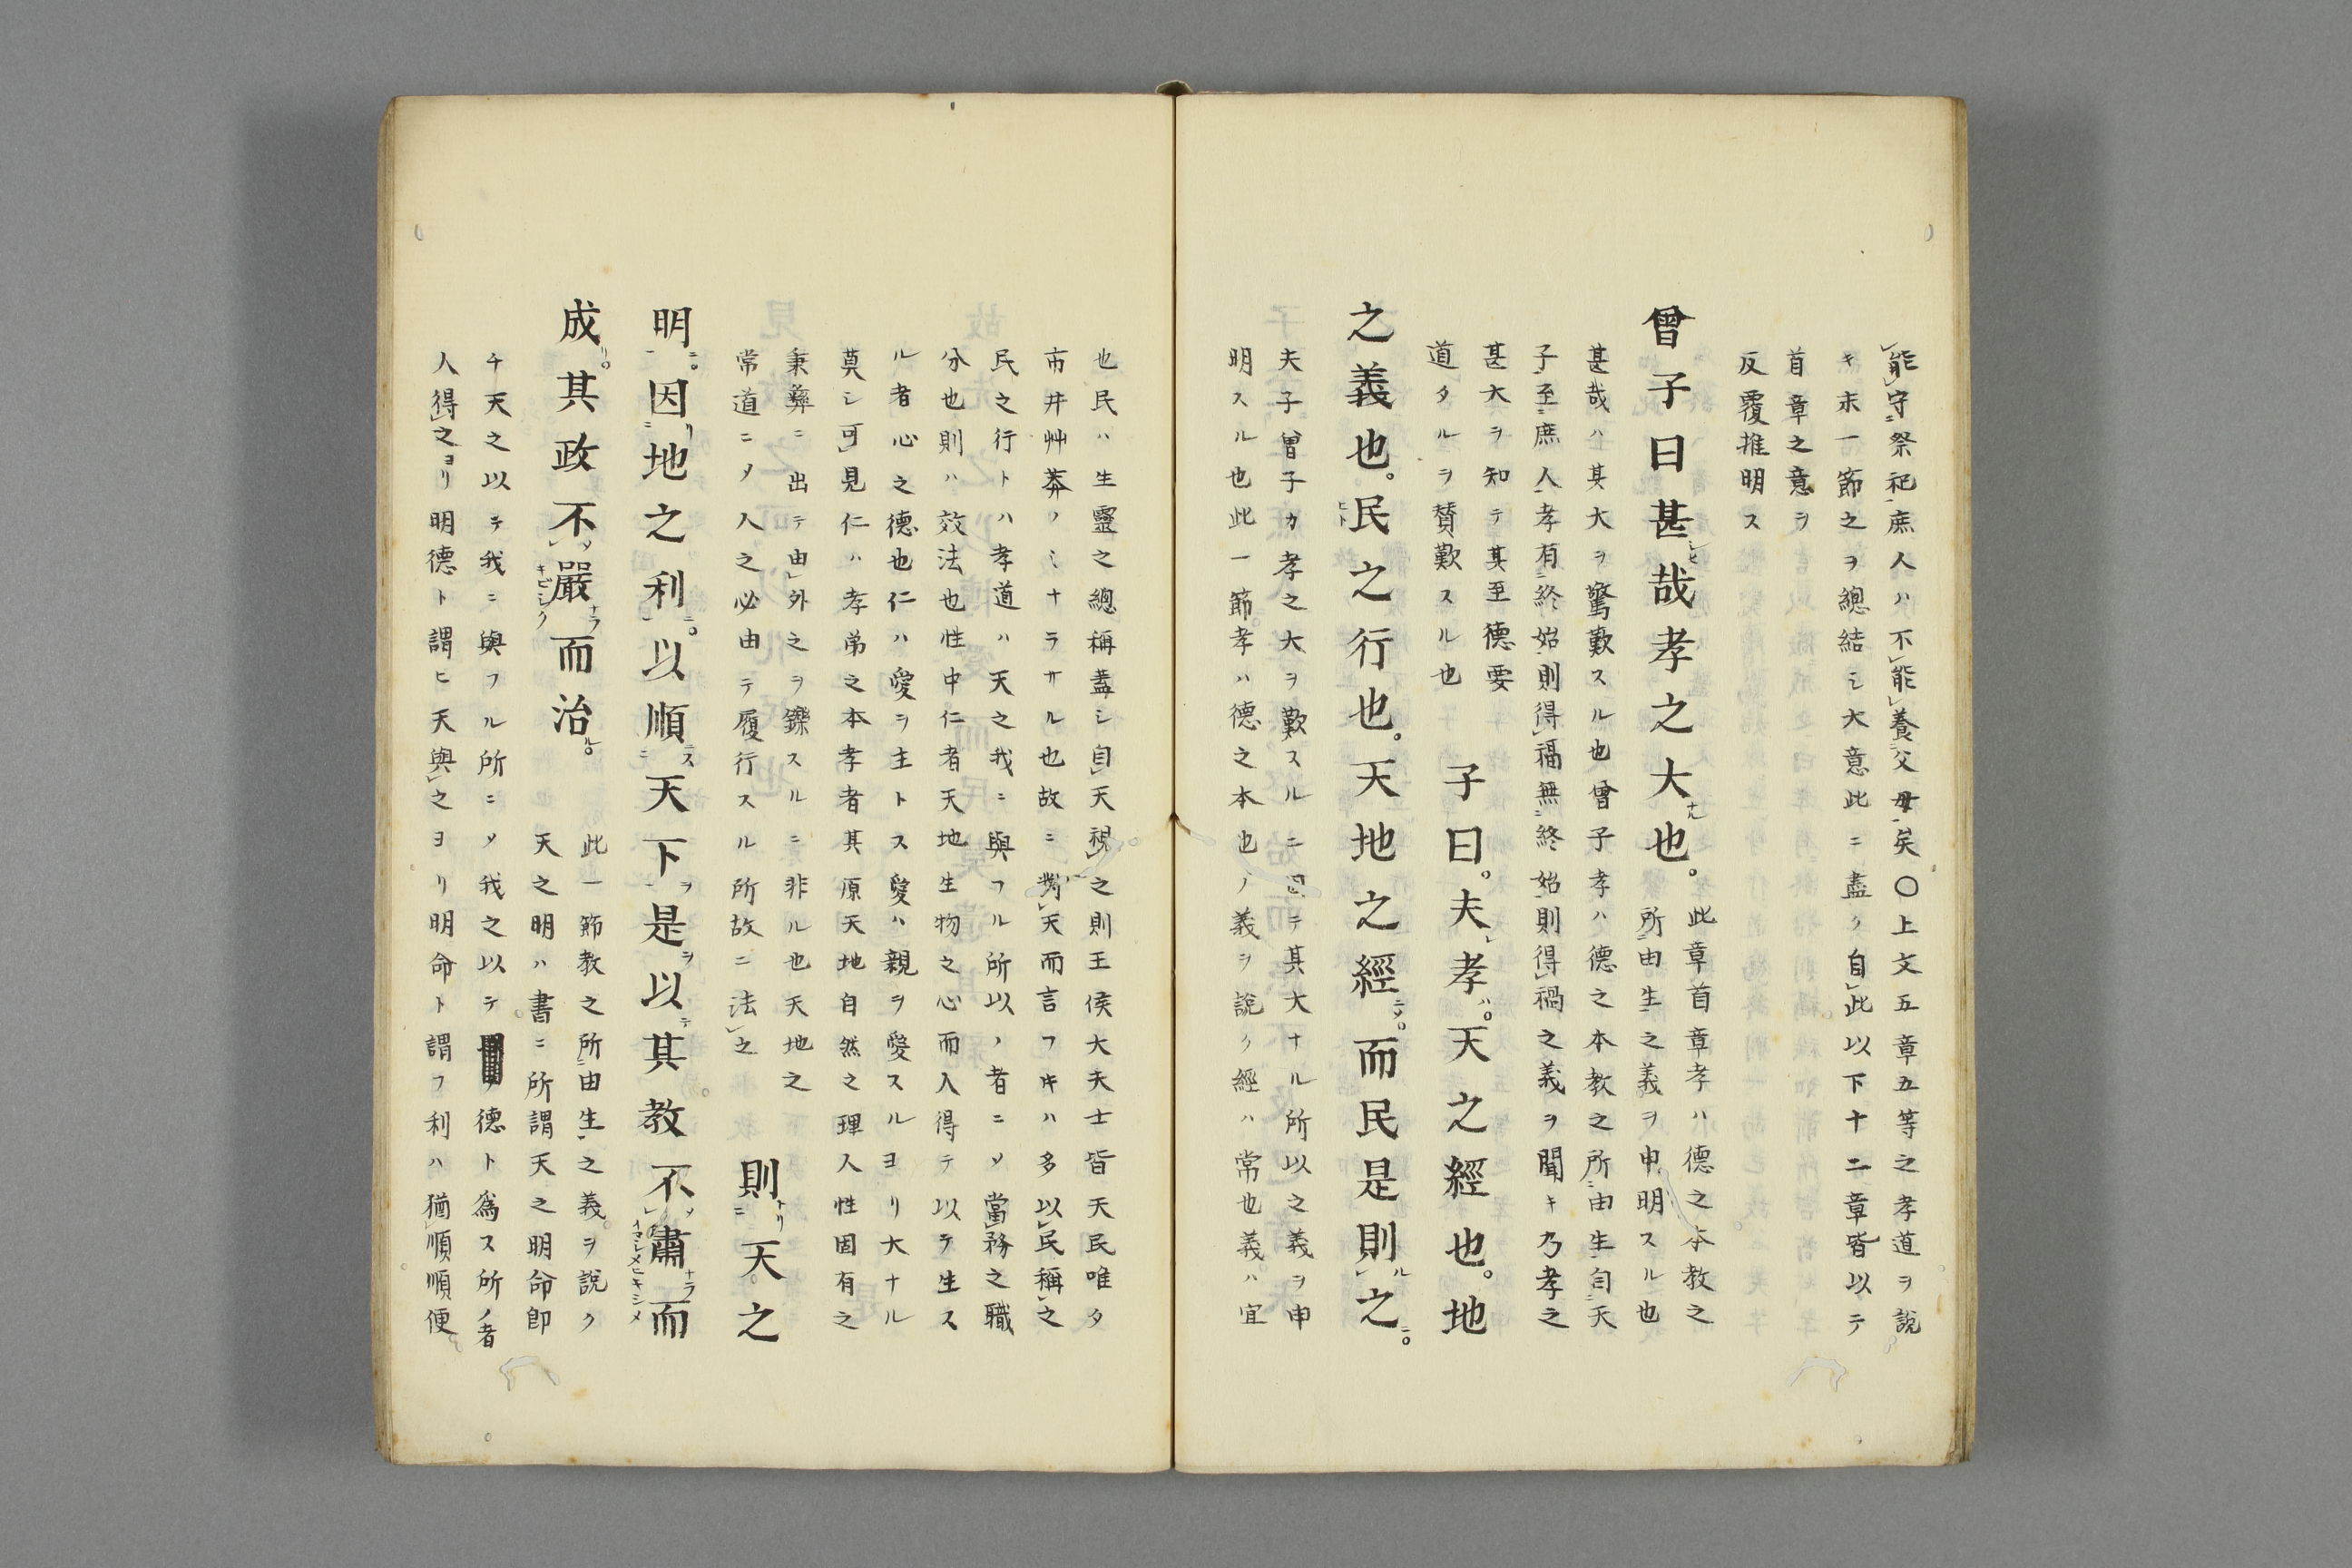 能守祭祀庶人ハ不能養父母矣〇上文五章五等之孝道ヲ說
キ末一節之ヲ總結シ大意此ニ盡ク自此以下十二章皆以テ
首章之意ヲ
反覆推明ス
曾子曰甚哉孝之大也。此章首章孝ハ德之本教之
所由生之義ヲ申明スル也
甚哉ハ其大ヲ驚歎スル也曾子孝ハ德之本教之所由生自天
子至庶人孝有終始則得福無終始則得禍之義ヲ聞キ乃孝之
甚大ヲ知テ其至德要
道タルヲ賛歎スル也
子曰。夫孝。天之經也。地
之義也。民之行也。天地之經。而民是則之。
夫子曾子カ孝之大ヲ歎スルニ因テ其大ナル所以之義ヲ申
明スル也此一節孝ハ德之本也ノ義ヲ說ク經ハ常也義ハ宜
也民ハ生靈之總稱蓋シ自天視之則王侯大夫士皆天民唯タ
市井艸莽ノミナラサル也故ニ對天而言フキハ多以民稱之
民之行トハ孝道ハ天之我ニ與フル所以ノ者ニメ當務之職
分也則ハ效法也性中仁者天地生物之心而人得テ以テ生ス
ル者心之德也仁ハ愛ヲ主トス愛ハ親ヲ愛スルヨリ大ナル
莫シ可見仁ハ孝弟之本孝者其原天地自然之理人性固有之
秉彝ニ出テ由外之ヲ鑠スルニ非ル也天地之
常道ニメ人之必由テ履行スル所故ニ法之
則天之
明。因地之利。以順天下是以其教不肅而
成。其政不嚴而治。
此一節教之所由生之義ヲ說ク
天之明ハ書ニ所謂天之明命卽
チ天之以テ我ニ與フル所ニメ我之以テ德ト爲ス所ノ者
人得之ヨリ明德ト謂ヒ天與之ヨリ明命ト謂フ利ハ猶順順便